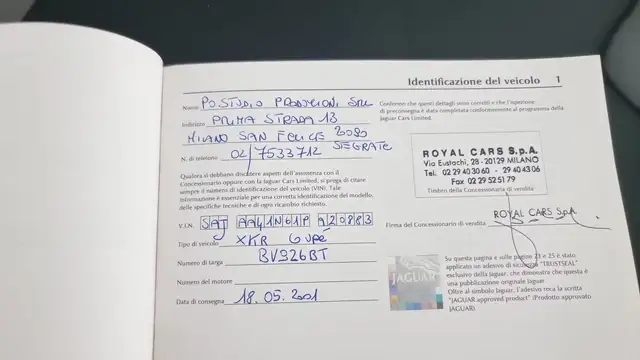 Identificazione del veicolo 1
Nome POSTUDIO PRODUZIONI SRL
Indirizzo PRIMA STRADA 13
MILANO SAN FELICE 20090
SEGRATE
N. di telefono 02/7533712
Qualora si debbano discutere aspetti dell'assistenza con il
Concessionario oppure con la Jaguar Cars Limited, si prega di citare
sempre il numero di identificazione del veicolo (VIN). Tale
informazione è essenziale per una corretta identificazione del modello,
delle specifiche tecniche e di ogni ricambio richiesto.
V.I.N. SAJ AA41N61P A20883
Tipo di veicolo XKR Coupé
Numero di targa BV926BT
Numero del motore
Data di consegna 18.05.2001
Confermo che questi dettagli sono corretti e che l'ispezione
di preconsegna è stata completata conformemente al programma della
Jaguar Cars Limited.
ROYAL CARS S.p.A.
Via Eustachi, 28 - 20129 MILANO
Tel. 02 29 40 30 60 - 29 40 43 06
Fax 02 29 52 51 79
Timbro della Concessionaria di vendita
Firma del Concessionario di vendita ROYAL CARS S.p.A.
JAGUAR
Su questa pagina e sulle pagine 23 e 25 è stato
applicato un adesivo di sicurezza "TRUSTSEAL"
esclusivo della Jaguar, che dimostra che questa è
una pubblicazione originale Jaguar
Oltre al simbolo Jaguar, l'adesivo reca la scritta
"JAGUAR approved product" (Prodotto approvato
JAGUAR).